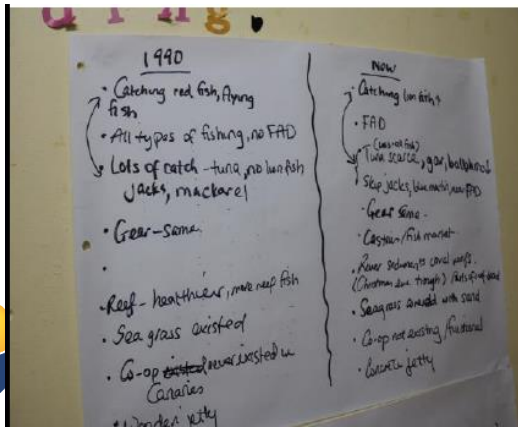 1990
• Catching red fish, flying
fish
• All types of fishing, no FAD
Lots of catch - tuna, no lion fish
jacks, mackarel
• Gear - same
•
• Reef - healthier, more reef fish
• Sea grass existed
• Co-op never existed in
Canaries
• Wooden jetty
Now
• Catching lion fish
• FAD
(Less red fish)
Tuna scarce, gar, ballyhoo
Skip jacks, blue marlin, near FAD
• Gear same
• Castries/Fish market
• River sediments coral reefs
(Christmas eve trough) Parts of reef dead
• Seagrass covered with sand
• Co-op not existing/functional
• Concrete jetty